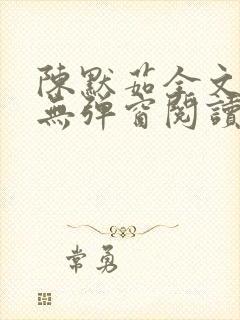 陳默茹全文
無彈窗閱讀
常勇